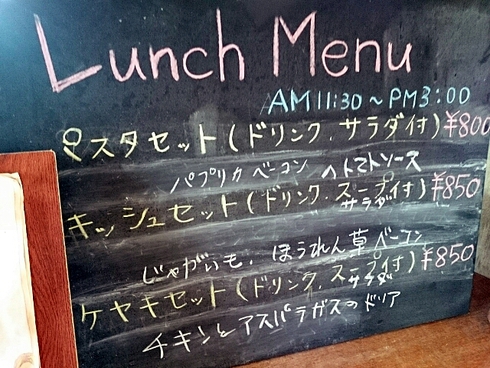 Lunch Menu
AM 11:30～PM3:00
パスタセット(ドリンク.サラダ付)¥800
パプリカベーコン のトマトソース
キッシュセット(ドリンク.スープ付)¥850
サラダ
じゃがいも.ほうれん草ベーコン
ケヤキセット(ドリンク.スープ付)¥850
サラダ
チキンとアスパラガスのドリア